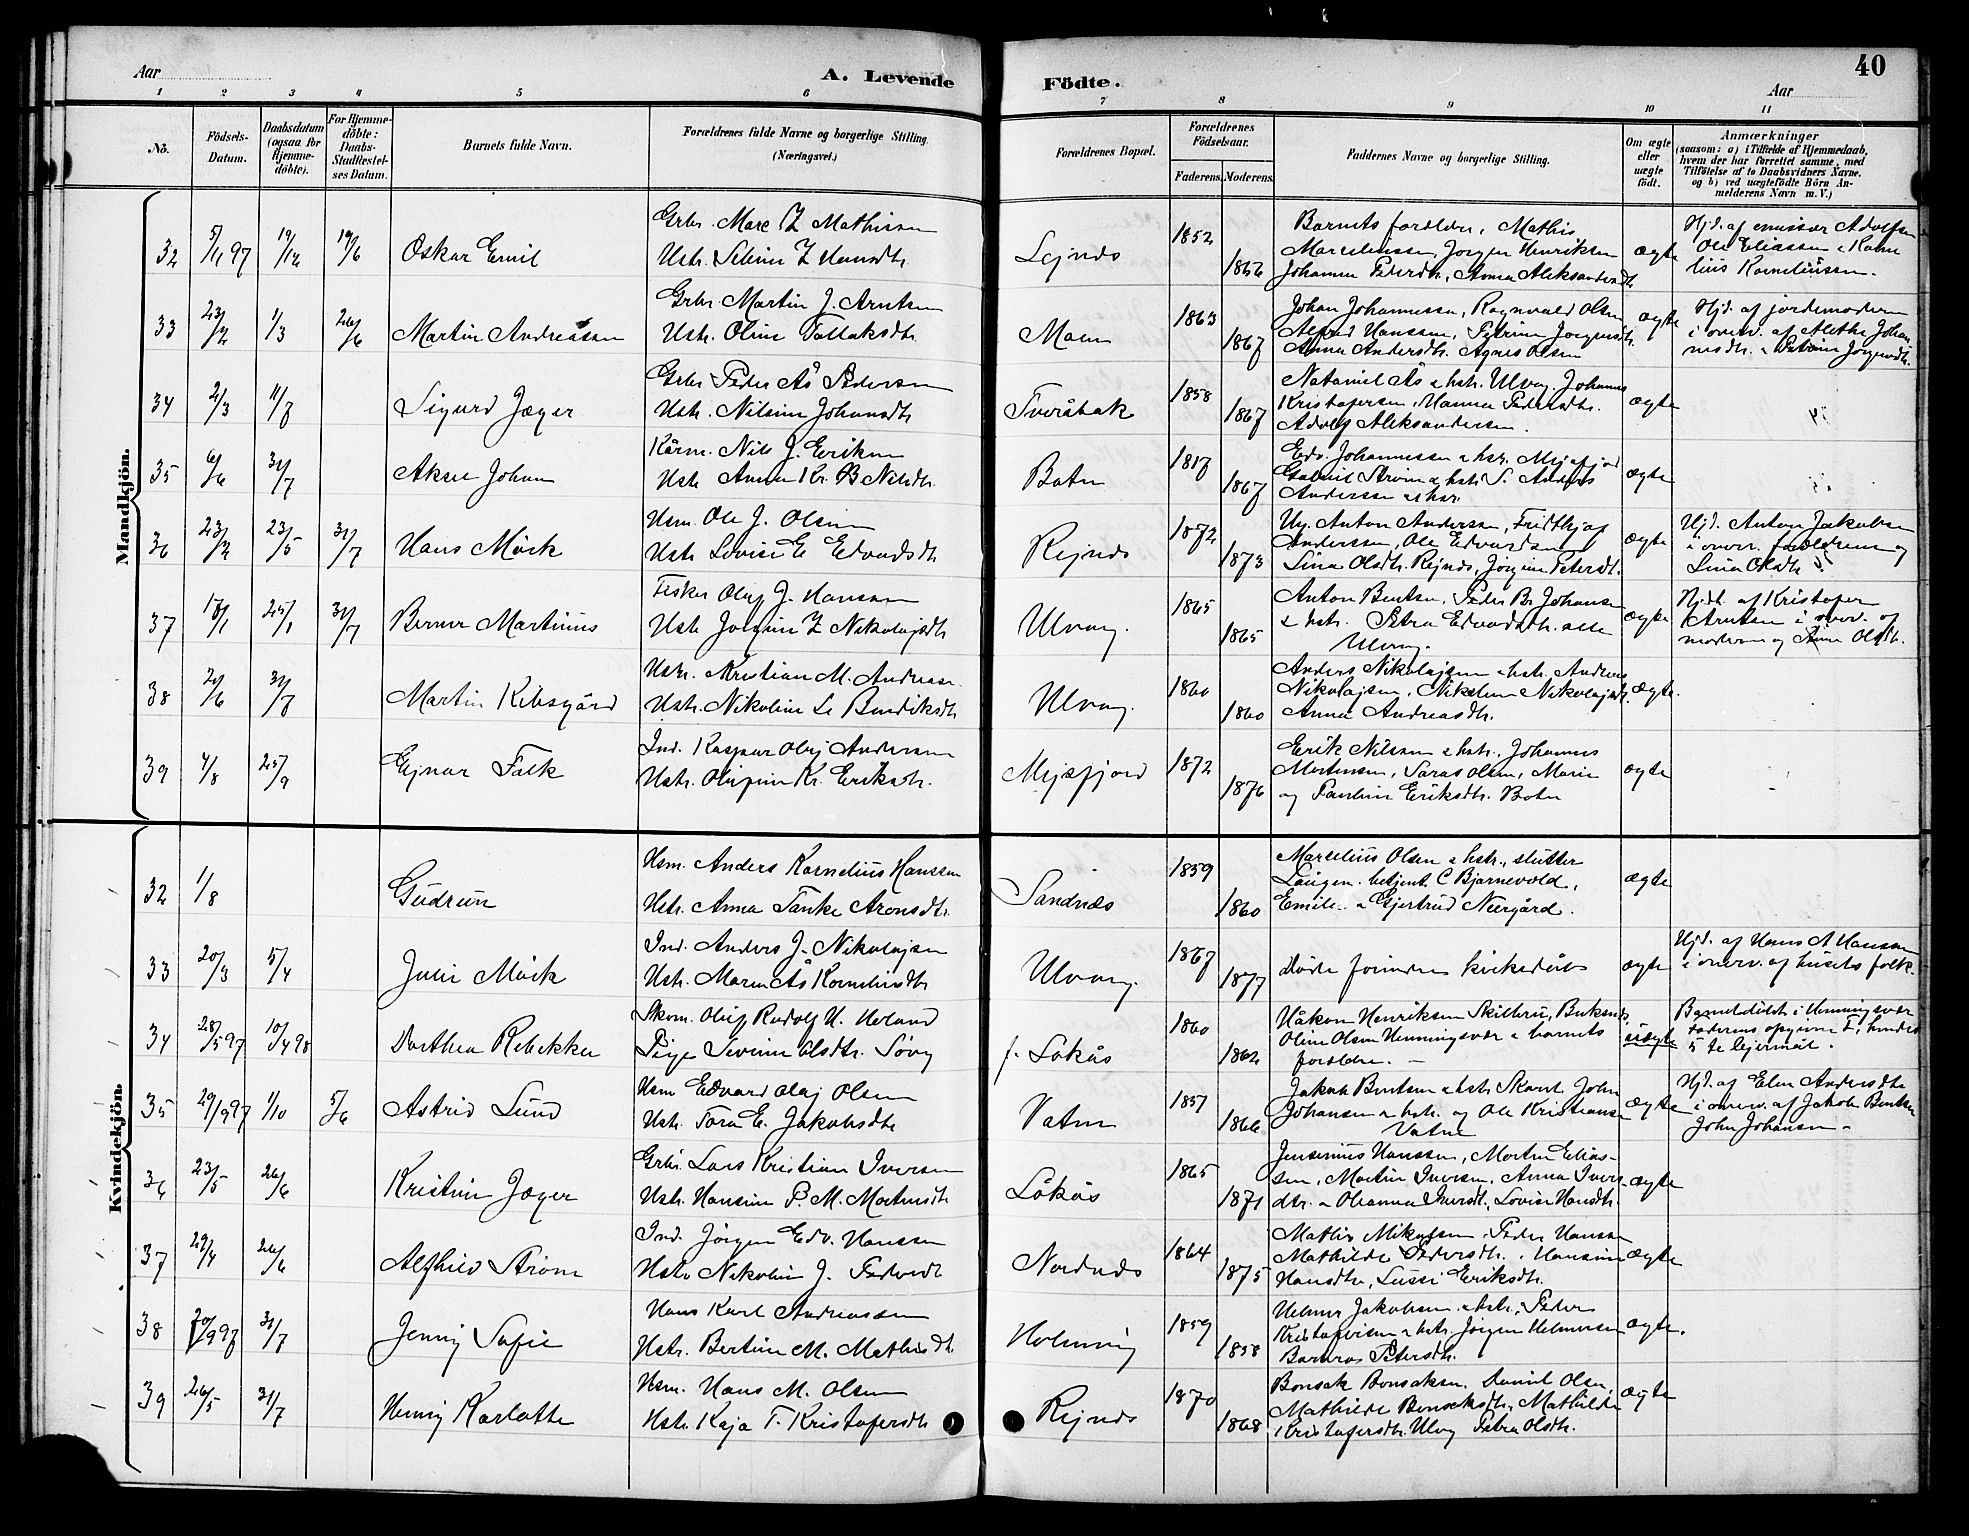 40
Aar
A. Levende
Födte.
Aar
1 2 3 4 5 6 7 8 9 10 11
No.
Födsels-
Datum.
Daabsdatum
(ogsaa for
Hjemme-
döbte).
For Hjemme-
döbte:
Daabs-
Stadfæstel-
ses Datum.
Barnets fulde Navn.
Forældrenes fulde Navne og borgerlige Stilling.
(Næringsvei.)
Forældrenes Bopæl.
Forældrenes
Födselsaar.
Faderens. Moderens.
Faddernes Navne og borgerlige Stilling.
Om ægte
eller
uægte
födt.
Anmærkninger
(saasom: a) i Tilfælde af Hjemmedaab,
hvem der har forrettet samme, med
Tilföielse af to Daabsvidners Navne,
og b) ved uægtefödte Börn An-
melderens Navn m. V.)
Mandkjön.
32 5/11 97 19/12 19/6 Oskar Emil
Grbr. Marc Z Mathisen
Ustr. Seline Z Hansdtr
Lejnds 1852 1866
Barnets foreldre, Mathis
Marseliussen, Jorgen Henriksen
Johanna Pedersdtr, Anna Aleksandersdtr
ægte
Hjd. af emissær Adolfsen
Ole Eliassen & Korne
lius Korneliussen.
33 23/2 1/3 26/6 Martin Andreassen
Grbr. Martin J. Arntsen
Ustr. Oline Tollaksdtr
Maen 1863 1867
Johan Johannessen, Ragnvald Olsen
Alfred Hanssen, Petrine Jorgensdtr.
Anna Andersdtr. Agnes Olsen
ægte
Hjd. af jordemoderen
i overv. af Alethe Johan
nesdtr. & Petrine Jorgensdtr.
34 2/3 11/8 Sigurd Jæger
Grbr Peder Ås Pedersen
Ustr. Nilsine Johansdtr
Tveråbak 1858 1867
Nataniel Ås & hstr. Ulvøy. Johannes
Kristofersen, Hanna Pedersdtr.
Adolf Aleksandersen.
ægte
35 6/6 31/7 Aksel Johan
Kårm. Nils J. Eriksen
Ustr Anna Kr. B Nilsdtr.
Botn 1817 1867
Edv. Johannessen & hstr. Mjæfjord
Gabriel Strøm & hstr. S. Andsnes
Anderssen & hstr.
ægte
36 23/2 23/5 31/7 Hans Mörk
Hsm. Ole J. Olsen
Ustr Lovise E Edvardsdtr
Rejnds 1872 1873
Ug. Anton Andersen, Fridthjof
Anderssen, Ole Edvardsen
Lina Olsdtr. Rejnds, Jorgine Petersdtr.
ægte
Hjd. Anton Jakobsen
i overv. foreldrene og
Lina Olsdtr.
37 18/1 25/1 31/7 Berner Martinus
Fisker Oluf J. Hansen
Ustr Jorgine Z Nikolajsdtr
Ulvøy. 1865 1865
Anton Bentsen, Peder Br. Johansen
& hstr. Petra Edvardsdtr. alle
Ulvøy.
ægte
Hjdt. af Kristofer
Arntsen i overv. af
moderen og Anne Olsdtr.
38 21/6 31/7 Martin Kibsgård
Ustr. Kristian M. Andreasen
Ustr. Nikoline Le Bendiksdtr
Ulvøy. 1860 1860
Anders Nikolajsen & hstr. Andreas
Nikolajsen, Nikoline Nikolajsdtr.
Anna Andreasdtr.
ægte.
39 4/8 25/9 Ejnar Falk
Ind. Kaspar Oluf Andersen
Ustr. Olufine Kr. Eriksdtr.
Mjæfjord 1872 1876
Erik Nilssen & hstr. Johannes
Mortensen, Saras Olsen, Marie
og Pauline Eriksdtr. Botn
ægte
Kvindekjön.
32 1/8 Gudrun
Hsm. Anders Kornelius Hanssen
Ustr. Anna Tanke Aronsdtr.
Sandnæs 1859 1860
Marselius Olsen & hstr., slutter
Laugen. betjent C Bjornevold,
Emile & Gjertrud Neergård.
ægte
33 20/3 5/4 Julie Mörk
Ind. Anders J. Nikolajsen
Ustr. Maren Ås Korneliusdtr
Ulvøy. 1867 1877
döde forinden kirkedåb
ægte
Hjd. af Hans A Hanssen
i overv. af husets folk.
34 28/5 97 10/4 98 Dorthea Rebekka
Skom. Oluf Rudolf H. Holand
Pige Severine Olsdtr. Søvg
f. Lökås 1860 1862
Håkon Henriksen Skillevu, Buksnes,
Oline Olsen Henningsvær & barnets
foreldre. —
uægte
Barnet döbt i Henningsvær
faderens opgivne I, hendes
5te lejermål.
35 29/9 97 1/10 5/6 Astrid Lund
Hsm Edvard Olaj Olsen
Ustr. Tora E. Jakobsdtr
Vatne 1857 1866
Jakob Bentsen & hstr Skaret, John
Johansen & hstr. og Ole Kristiansen
Vatne
ægte
Hjd. af Elen Andersdtr
i overv. af Jakob Bentsen
John Johansen —
36 23/5 26/6 Kristine Jæger
Grbr. Lars Kristian Iversen
Ustr. Hansine P. M. Mortensdtr
Lökås 1865 1871
Jensenius Hanssen, Morten Elias-
sen, Martin Iversen, Anna Ivers-
dtr. & Oleanna Iversdtr, Lovise Hansdtr.
ægte
37 29/4 26/6 Alfhild Strøm
Ind. Jörgen Edv. Hanssen
Ustr Nikoline J. Pedersdtr
Nordnæs 1864 1875
Mathis Mikalsen, Peder Hanssen
Mathilde Pedersdtr., Hansine
Hansdtr, Lussi Eriksdtr.
ægte
38 20/9 97 31/7 Jenny Sofie
Hans Karl Andreassen
Ustr. Bertine M. Mathisdtr.
Holmvig 1859 1858
Helmer Jakobsen & hstr., Peder
Kristofersen & hstr. Jörgen Helmersen
Barbra Petersdtr.
ægte.
39 26/5 31/7 Henny Karlotte
Hsm. Hans M. Olsen
Ustr Kaja T. Kristofersdtr
Rejnds 1870 1868
Bonsak Bonsaksen, Daniel Olsen,
Mathilde Bonsaksdtr, Mathilde
Kristofersdtr. Ulvøy Petra Olsdtr.
ægte